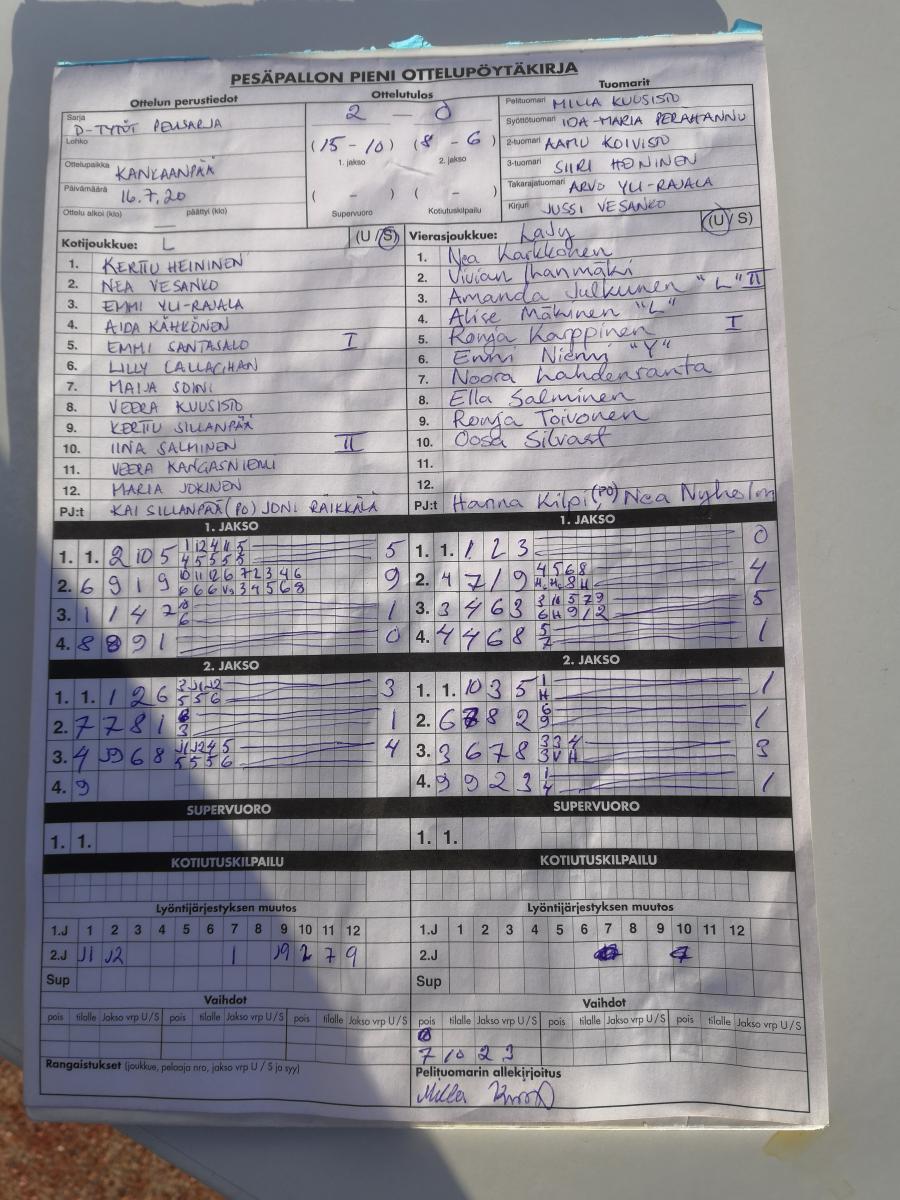 PESÄPALLON PIENI OTTELUPÖYTÄKIRJA
Ottelun perustiedot
Sarja
D-TYTÖT PERUSSARJA
Lohko
Ottelupaikka KANKAANPÄÄ
Päivämäärä 16.7.20
Ottelu alkoi (klo) päättyi (klo)
Ottelutulos
2 — 0
(15 - 10) (8 - 6)
1. jakso 2. jakso
( - ) ( - )
Supervuoro Kotiutuskilpailu
Tuomarit
Pelituomari MILLA KUUSISTO
Syöttötuomari IDA-MARIA PERÄHANNU
2-tuomari AAMU KOIVISTO
3-tuomari SIIRI HEININEN
Takarajatuomari ARVO YLI-RAJALA
Kirjuri JUSSI VESANKO
Kotijoukkue: L (U / S)
1. KERTTU HEININEN
2. NEA VESANKO
3. EMMI YLI-RAJALA
4. AIDA KÄHKÖNEN
5. EMMI SANTASALO I
6. LILLY CALLAGHAN
7. MAIJA SOINI
8. VEERA KUUSISTO
9. KERTTU SILLANPÄÄ
10. IINA SALMINEN II
11. VEERA KANGASNIEMI
12. MARIA JOKINEN
PJ:t KAI SILLANPÄÄ (PO) JONI RÄIKKÄLÄ
Vierasjoukkue: Lady (U / S)
1. Nea Karkkonen
2. Vivian Ihanmäki
3. Amanda Julkunen "L" II
4. Alise Mäkinen "L"
5. Ronja Karppinen I
6. Enni Niemi "Y"
7. Noora Lahdenranta
8. Ella Salminen
9. Ronja Toivonen
10. Oosa Silvast
11.
12.
PJ:t Hanna Kilpi (PO), Nea Nyholm
1. JAKSO
1. 1. 2 10 5 5
2. 6 9 1 9 9
3. 1 1 4 7 1
4. 8 8 9 1 0
2. JAKSO
1. 1. 1 2 6 3
2. 7 7 8 1 1
3. 4 J9 6 8 4
4. 9
SUPERVUORO
1. 1.
KOTIUTUSKILPAILU
1. JAKSO
1. 1. 1 2 3 0
2. 4 7 1 9 4
3. 3 4 6 3 5
4. 4 4 6 8 1
2. JAKSO
1. 1. 10 3 5 1
2. 6 8 8 2 1
3. 3 6 7 8 3
4. 9 9 2 3 1
SUPERVUORO
1. 1.
KOTIUTUSKILPAILU
Lyöntijärjestyksen muutos
1.J 1 2 3 4 5 6 7 8 9 10 11 12
2.J J1 J2 1 J9 2 7 9
Sup
Vaihdot
pois tilalle Jakso vrp U / S pois tilalle Jakso vrp U / S pois tilalle Jakso vrp U / S
Rangaistukset (joukkue, pelaaja nro, jakso vrp U / S ja syy)
Lyöntijärjestyksen muutos
1.J 1 2 3 4 5 6 7 8 9 10 11 12
2.J 7
Sup
Vaihdot
pois tilalle Jakso vrp U / S pois tilalle Jakso vrp U / S pois tilalle Jakso vrp U / S
7 10 2 3
Pelituomarin allekirjoitus
Milla